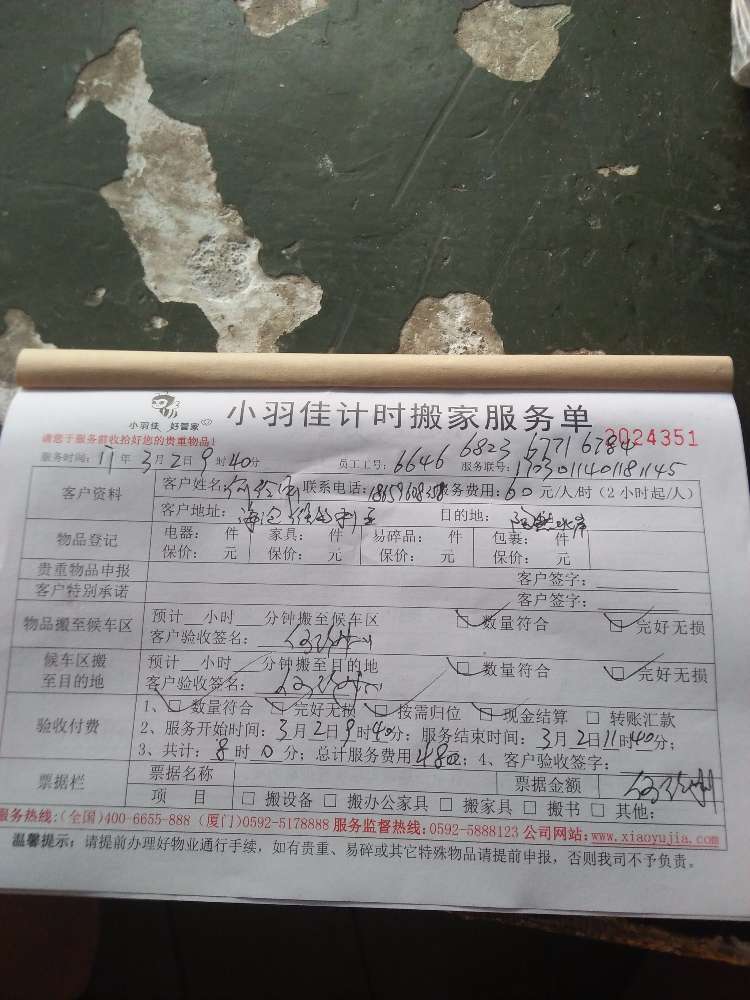 小羽佳 好管家
小羽佳计时搬家服务单
请您于服务前收拾好您的贵重物品!
2024351
6823 6771 6784
服务时间: 17年3月2日9时40分 员工工号: 6646 服务联号: 1703011401181145
客户资料 客户姓名: 联系电话: 服务费用: 60元/人/时 (2小时起/人)
客户地址: 目的地:
物品登记 电器: 件 家具: 件 易碎品: 件 包裹: 件
保价: 元 保价: 元 保价: 元 保价: 元
贵重物品申报 客户签字:
客户特别承诺 客户签字:
物品搬至候车区 预计__小时___分钟搬至候车区 □数量符合 □完好无损
客户验收签名:
候车区搬至目的地 预计__小时___分钟搬至目的地 □数量符合 □完好无损
客户验收签名:
验收付费 1、□数量符合 □完好无损 □按需归位 □现金结算 □转账汇款
2、服务开始时间: 3月2日9时40分; 服务结束时间: 3月2日11时40分;
3、共计: 8时0分; 总计服务费用480元; 4、客户验收签字:
票据栏 票据名称 票据金额
项 目 □搬设备 □搬办公家具 □搬家具 □搬书 □其他:
服务热线:(全国)400-6655-888 (厦门)0592-5178888 服务监督热线:0592-5888123 公司网站:www.xiaoyujia.com
温馨提示: 请提前办理好物业通行手续, 如有贵重、易碎或其它特殊物品请提前申报, 否则我司不予负责。